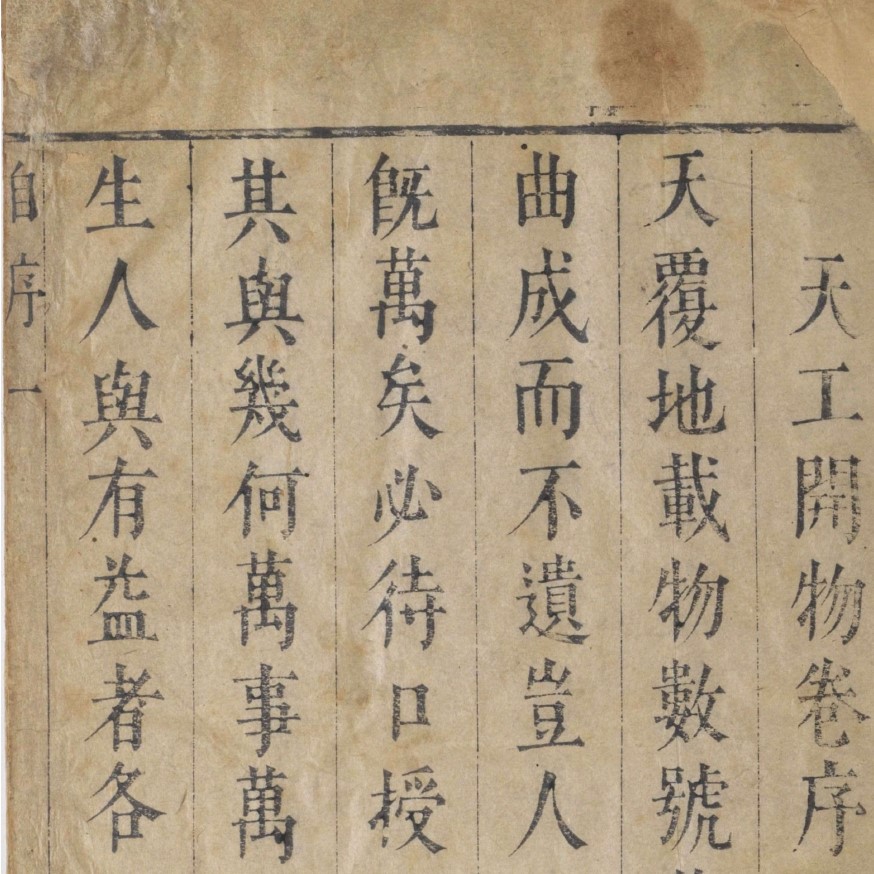 天工開物卷序
天覆地載物數號
曲成而不遺豈人
旣萬矣必待口授
其與幾何萬事萬
生人與有益者各
自序 一